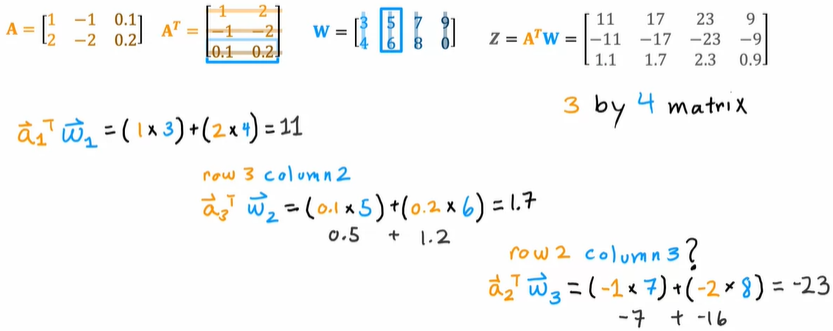 A = [1 -1 0.1
2 -2 0.2] Aᵀ = [1 2
-1 -2
0.1 0.2] W = [3 5 7 9
4 6 8 0] Z = AᵀW = [11 17 23 9
-11 -17 -23 -9
1.1 1.7 2.3 0.9]
3 by 4 matrix
a⃗₁ᵀ w⃗₁ = (1 × 3) + (2 × 4) = 11
row 3 column 2
a⃗₃ᵀ w⃗₂ = (0.1 × 5) + (0.2 × 6) = 1.7
0.5 + 1.2
row 2 column 3?
a⃗₂ᵀ w⃗₃ = (-1 × 7) + (-2 × 8) = -23
-7 + -16